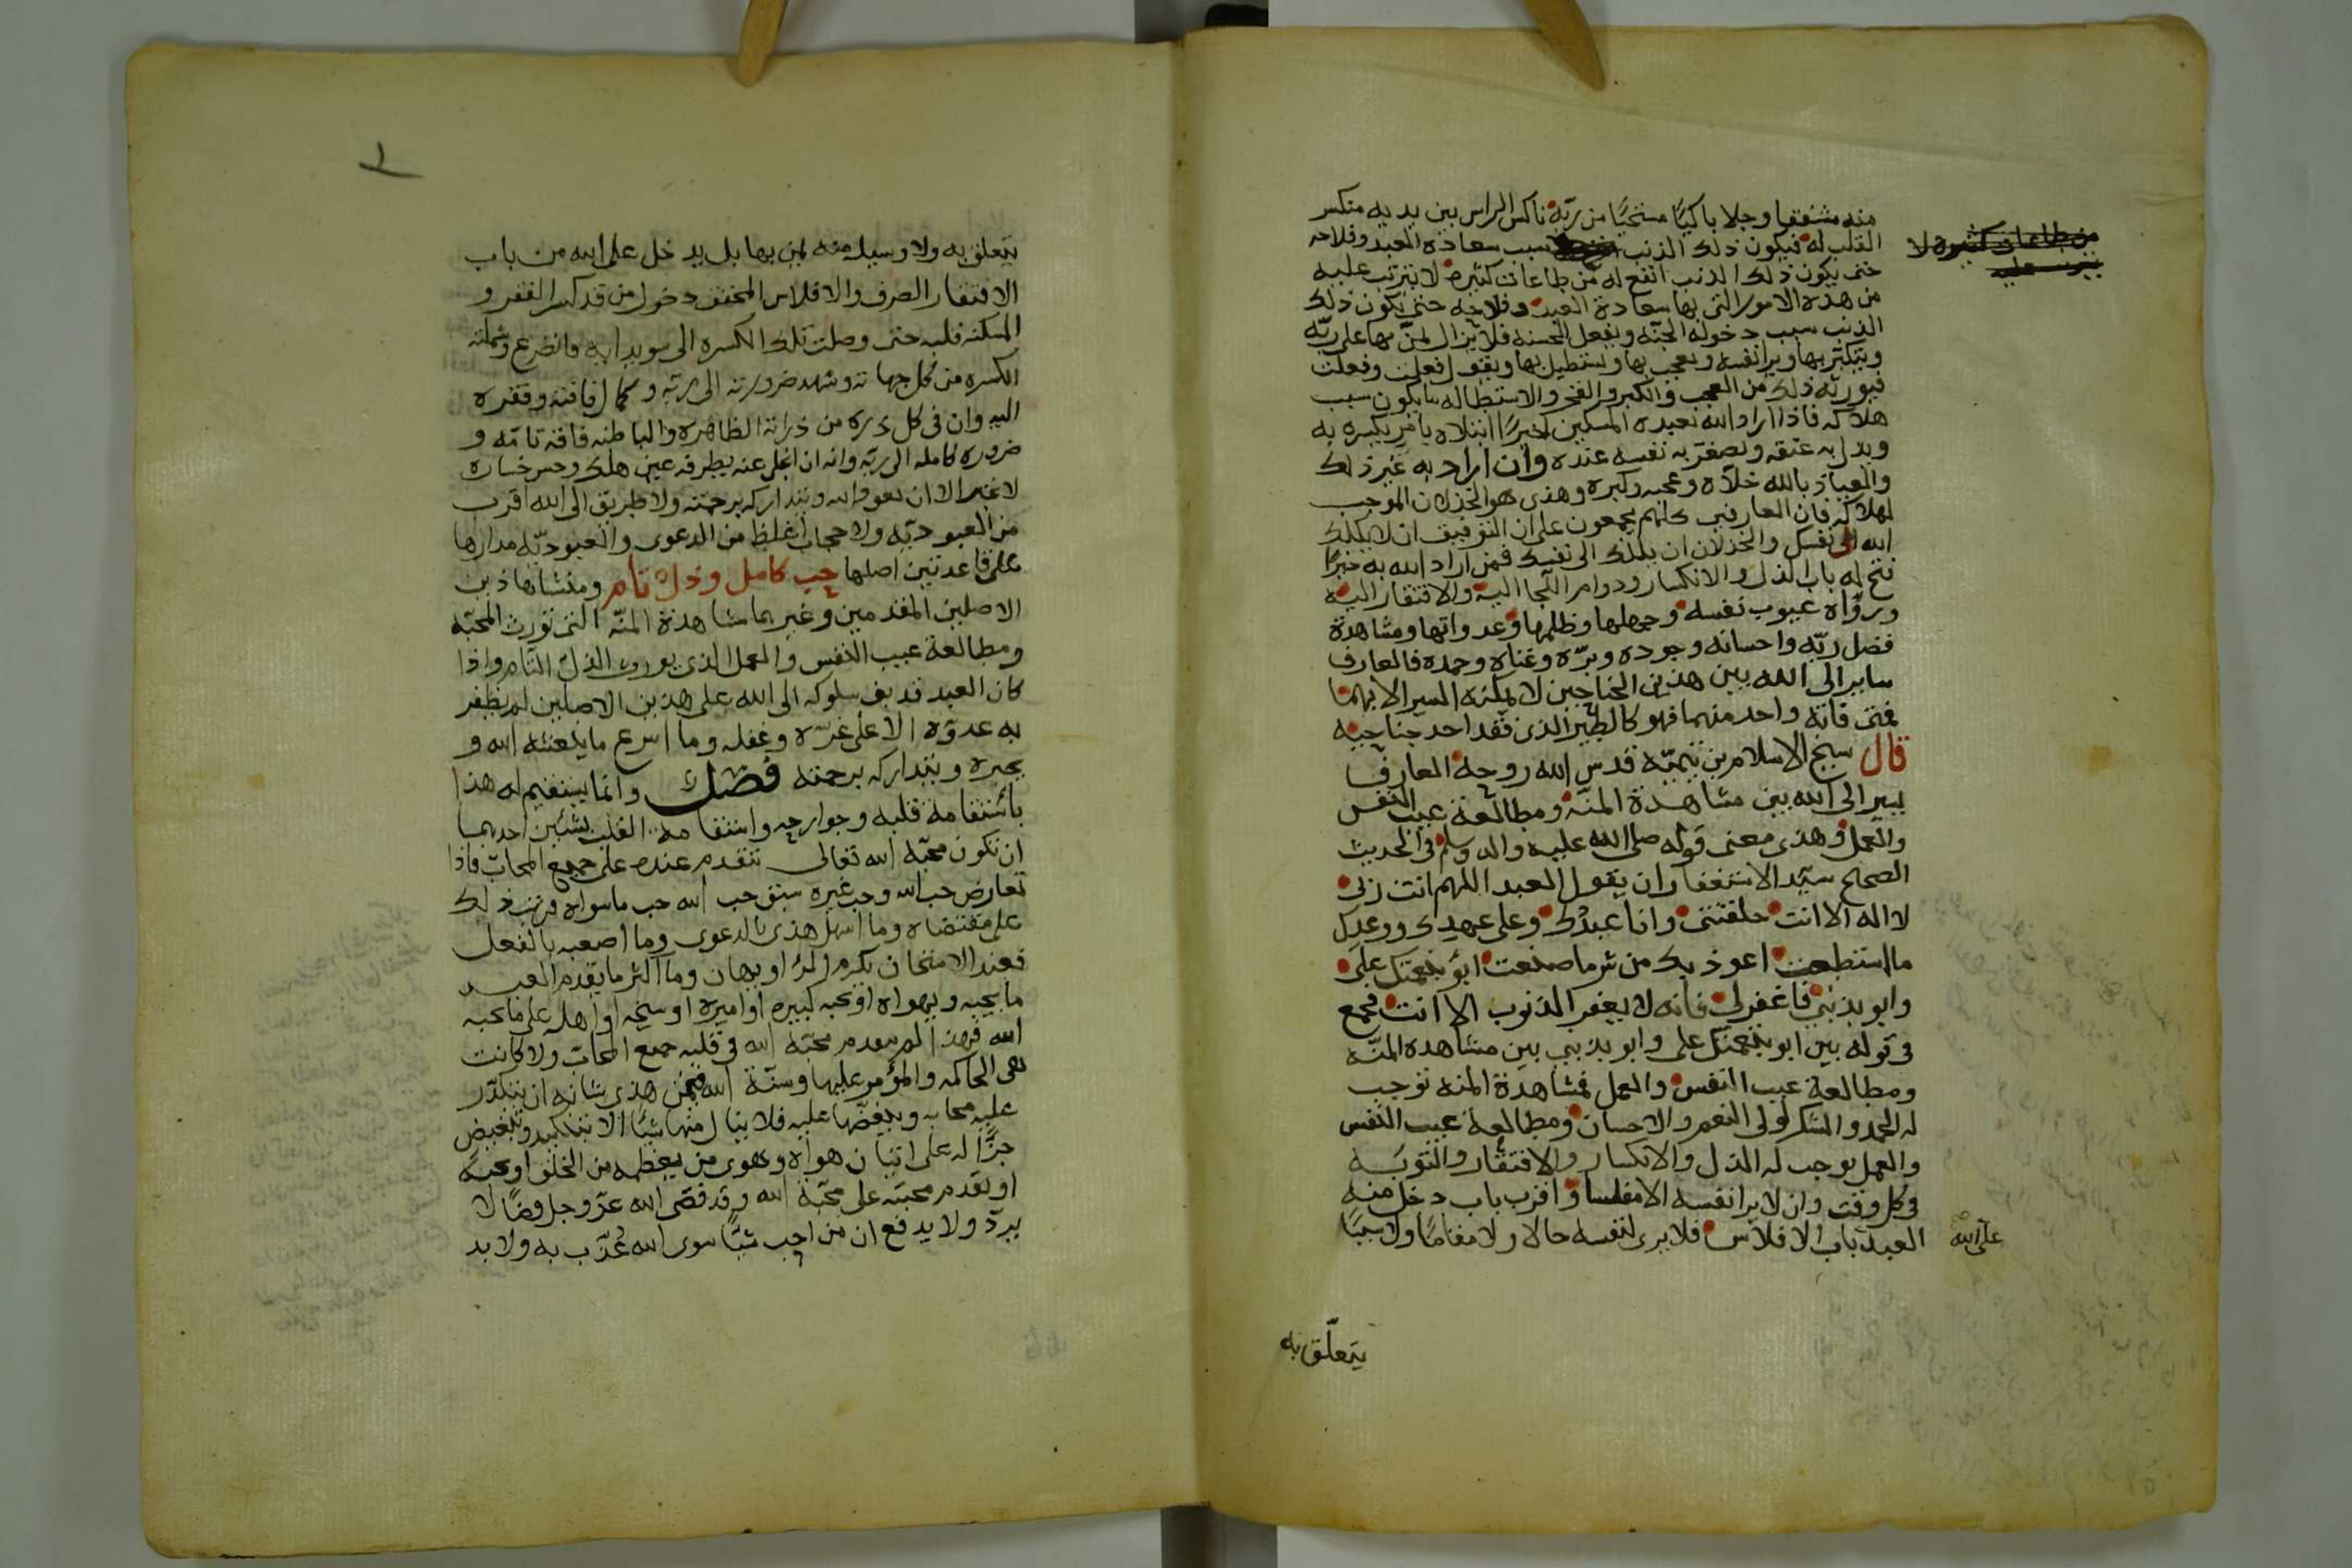 منه مشفقا وجلا باكيًا مستحيًا من ربّه ناكس الراس بين يديه منكسر
القلب له فيكون ذلك الذنب سبب سعادة العبد وفلاحه
حتى يكون ذلك الذنب انفع له من طاعات كثيره لا يترتب عليه
من هذه الامور التى بها سعادة العبد وفلاحه حتى يكون ذلك
الذنب سبب دخوله الجنّه ويفعل الحسنه فلا يزال يمنّ بها على ربّه
ويتكبّر بها ويرا نفسه ويعجب بها ويستطيل بها ويقول فعلت وفعلت
فيورثه ذلك من العجب والكبر والفخر والاستطاله ما يكون سبب
هلاكه فاذا اراد الله بعبده المسكين خيرًا ابتلاه بامر يكسره به
ويذل به عنقه ويصغر به نفسه عنده وان اراد به غير ذلك
والعياذ بالله خلّاه وعجبه وكبره وهذى هو الخذلان الموجب
لهلاكه فان العارفين كلهم يجمعون على ان التوفيق ان لا يكلك
الله الى نفسك والخذلان ان يكلك الى نفسك فمن اراد الله به خيرًا
فتح له باب الذل والانكسار ودوام اللّجا اليه والافتقار اليه
وبروّاه عيوب نفسه وجهلها وظلمها وعدوانها ومشاهدة
فضل ربّه واحسانه وجوده وبرّه وغناه وحمده فالعارف
ساير الى الله بين هذين الجناحين لا يمكنه السير الا بهما
فمتى فاته واحد منهما فهو كالطير الذى فقد احد جناحيه
قال شيخ الاسلام بن تيميّه قدس الله روحه العارف
يسير الى الله بين مشاهدة المنّه ومطالعة عيب النفس
والعمل وهذى معنى قوله صلى الله عليه واله وسلم فى الحديث
الصحاح سيّد الاستغفار ان يقول العبد اللهم انت ربى
لا اله الا انت خلقتنى وانا عبدك وعلى عهدك ووعدك
ما استطعت اعوذ بك من شر ما صنعت ابؤ بنعمتك علىّ
وابو بذنبى فاغفرلى فانه لا يغفر الذنوب الا انت فجمع
فى قوله بين ابو بنعمتك على وابو بذنبى بين مشاهده المنّه
ومطالعة عيب النفس والعمل فمشاهدة المنه توجب
له الحمد والشكر لولى النعم والاحسان ومطالعة عيب النفس
والعمل يوجب له الذل والانكسار والافتقار والتوبه
فى كل وقت وان لا يرا نفسه الا مفلسا واقرب باب دخل منه
العبد باب الافلاس فلا يرى لنفسه حالا ولا مقامًا ولا سببًا
على الله
يتعلّق به
من طاعات كثيره لا
يترتب عليه
يتعلق به ولا وسيله منه يمن بها بل يدخل على الله من باب
الافتقار الصرف والافلاس المحض دخول من قد كسر الفقر و
المسكنه قلبه حتى وصلت تلك الكسره الى سويدايه فانصدع وشملته
الكسره من كل جهاته وشهد ضرورته الى ربّه وكمال فاقته وفقره
اليه وان فى كل ذره من ذراته الظاهره والباطنه فاقه تامّه و
ضروره كامله الى ربّه وانه ان تخلى عنه طرفة عين هلك وخسر خساره
لا تجبر الا ان يعود الله ويتداركه برحمته ولا طريق الى الله اقرب
من العبوديّه ولا حجاب اغلظ من الدعوى والعبوديّه مدارها
على قاعدتين اصلها حب كامل وذل تام ومنشا هاذين
الاصلين المقدمين وغيرهما مشاهدة المنّه التى تورث المحبّه
ومطالعة عيب النفس والعمل الذى يورث الذلّ التام واذا
كان العبد قد بنى سلوكه الى الله على هذين الاصلين لم يظفر
به عدوّه الا على غرّه وغفله وما اسرع ما ينعشه الله و
يجبره ويتداركه برحمته فصل وانما يستقيم له هذا
باستقامة قلبه وجوارحه واستقامة القلب بشيئين احدهما
ان تكون محبّة الله تعالى تتقدم عنده على جميع المحابّ فاذا
تعارض حب الله وحب غيره سبق حب الله حب ما سواه فرتب ذلك
على مقتضاه وما اسهل هذى بالدعوى وما اصعبه بالفعل
فعند الامتحان يكرم المرء او يهان وما اكثر ما يقدم العبد
ما يحبه ويهواه او يحبه كبيره او اميره او شيخه او اهله على ما يحبه
الله فهذا لم يتقدم محبّة الله فى قلبه جميع المحابّ ولا كانت
هى الحاكمه والمؤمر عليها وسنّة الله فيمن هذى شانه ان ينكّد
عليه محابه وينغّصها عليه فلا ينال منها شيئًا الا بتنكيد وتنغيص
جزًا له على اتيان هواه وهوى من يعظمه من الخلق او يحبّه
او يقدم محبته على محبّة الله وقد قضى الله عزّ وجل قضًا لا
يردّ ولا يدفع ان من احب شيئًا سوى الله عُذّب به ولا بد